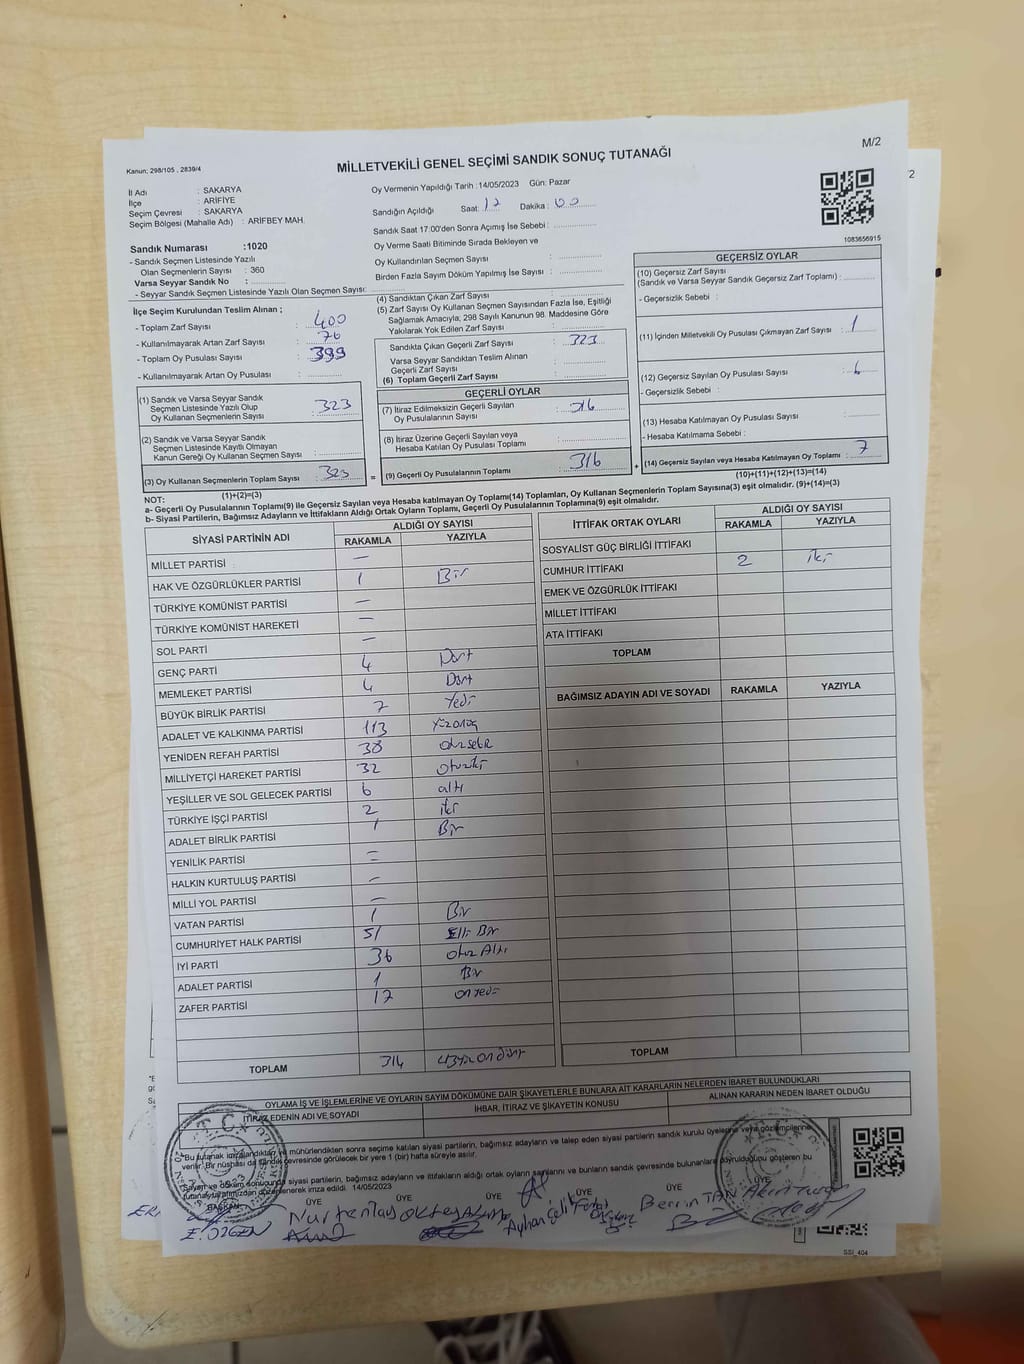 M/2
Kanun: 298/105 , 2839/4
MİLLETVEKİLİ GENEL SEÇİMİ SANDIK SONUÇ TUTANAĞI
İl Adı : SAKARYA
İlçe : ARİFİYE
Seçim Çevresi : SAKARYA
Seçim Bölgesi (Mahalle Adı) : ARİFBEY MAH.
Sandık Numarası :1020
- Sandık Seçmen Listesinde Yazılı
Olan Seçmenlerin Sayısı : 360
Varsa Seyyar Sandık No :
- Seyyar Sandık Seçmen Listesinde Yazılı Olan Seçmen Sayısı:
Oy Vermenin Yapıldığı Tarih :14/05/2023 Gün: Pazar
Sandığın Açıldığı Saat: 17 Dakika : 00
Sandık Saat 17:00'den Sonra Açımış İse Sebebi :
Oy Verme Saati Bitiminde Sırada Bekleyen ve
Oy Kullandırılan Seçmen Sayısı :
Birden Fazla Sayım Döküm Yapılmış İse Sayısı :
1083656915
İlçe Seçim Kurulundan Teslim Alınan ;
- Toplam Zarf Sayısı : 400
- Kullanılmayarak Artan Zarf Sayısı : 76
- Toplam Oy Pusulası Sayısı : 399
- Kullanılmayarak Artan Oy Pusulası :
(1) Sandık ve Varsa Seyyar Sandık
Seçmen Listesinde Yazılı Olup
Oy Kullanan Seçmenlerin Sayısı : 323
(2) Sandık ve Varsa Seyyar Sandık
Seçmen Listesinde Kayıtlı Olmayan
Kanun Gereği Oy Kullanan Seçmen Sayısı :
(3) Oy Kullanan Seçmenlerin Toplam Sayısı : 323
(1)+(2)=(3)
(4) Sandıktan Çıkan Zarf Sayısı :
(5) Zarf Sayısı Oy Kullanan Seçmen Sayısından Fazla İse, Eşitliği
Sağlamak Amacıyla; 298 Sayılı Kanunun 98. Maddesine Göre
Yakılarak Yok Edilen Zarf Sayısı :
Sandıkta Çıkan Geçerli Zarf Sayısı : 323
Varsa Seyyar Sandıktan Teslim Alınan
Geçerli Zarf Sayısı :
(6) Toplam Geçerli Zarf Sayısı :
GEÇERLİ OYLAR
(7) İtiraz Edilmeksizin Geçerli Sayılan
Oy Pusulalarının Sayısı : 316
(8) İtiraz Üzerine Geçerli Sayılan veya
Hesaba Katılan Oy Pusulası Toplamı :
= (9) Geçerli Oy Pusulalarının Toplamı : 316
GEÇERSİZ OYLAR
(10) Geçersiz Zarf Sayısı
(Sandık ve Varsa Seyyar Sandık Geçersiz Zarf Toplamı) :
- Geçersizlik Sebebi :
(11) İçinden Milletvekili Oy Pusulası Çıkmayan Zarf Sayısı : 1
(12) Geçersiz Sayılan Oy Pusulası Sayısı : 6
- Geçersizlik Sebebi :
(13) Hesaba Katılmayan Oy Pusulası Sayısı :
- Hesaba Katılmama Sebebi :
+ (14) Geçersiz Sayılan veya Hesaba Katılmayan Oy Toplamı : 7
(10)+(11)+(12)+(13)=(14)
NOT:
a- Geçerli Oy Pusulalarının Toplamı(9) ile Geçersiz Sayılan veya Hesaba Katılmayan Oy Toplamı(14) Toplamları, Oy Kullanan Seçmenlerin Toplam Sayısına(3) eşit olmalıdır. (9)+(14)=(3)
b- Siyasi Partilerin, Bağımsız Adayların ve İttifakların Aldığı Ortak Oyların Toplamı, Geçerli Oy Pusulalarının Toplamına(9) eşit olmalıdır.
SİYASİ PARTİNİN ADI ALDIĞI OY SAYISI
RAKAMLA YAZIYLA
MİLLET PARTİSİ —
HAK VE ÖZGÜRLÜKLER PARTİSİ 1 Bir
TÜRKİYE KOMÜNİST PARTİSİ —
TÜRKİYE KOMÜNİST HAREKETİ —
SOL PARTİ —
GENÇ PARTİ 4 Dört
MEMLEKET PARTİSİ 4 Dört
BÜYÜK BİRLİK PARTİSİ 7 Yedi
ADALET VE KALKINMA PARTİSİ 113 Yüzonüç
YENİDEN REFAH PARTİSİ 38 otuzsekiz
MİLLİYETÇİ HAREKET PARTİSİ 32 otuziki
YEŞİLLER VE SOL GELECEK PARTİSİ 6 altı
TÜRKİYE İŞÇİ PARTİSİ 2 iki
ADALET BİRLİK PARTİSİ 1 Bir
YENİLİK PARTİSİ —
HALKIN KURTULUŞ PARTİSİ —
MİLLİ YOL PARTİSİ —
VATAN PARTİSİ 1 Bir
CUMHURİYET HALK PARTİSİ 51 Elli Bir
İYİ PARTİ 36 otuz Altı
ADALET PARTİSİ 1 Bir
ZAFER PARTİSİ 17 onyedi
TOPLAM 314 üçyüz on dört
İTTİFAK ORTAK OYLARI ALDIĞI OY SAYISI
RAKAMLA YAZIYLA
SOSYALİST GÜÇ BİRLİĞİ İTTİFAKI
CUMHUR İTTİFAKI 2 iki
EMEK VE ÖZGÜRLÜK İTTİFAKI
MİLLET İTTİFAKI
ATA İTTİFAKI
TOPLAM
BAĞIMSIZ ADAYIN ADI VE SOYADI RAKAMLA YAZIYLA
TOPLAM
OYLAMA İŞ VE İŞLEMLERİNE VE OYLARIN SAYIM DÖKÜMÜNE DAİR ŞİKAYETLERLE BUNLARA AİT KARARLARIN NELERDEN İBARET BULUNDUKLARI
İTİRAZ EDENİN ADI VE SOYADI İHBAR, İTİRAZ VE ŞİKAYETİN KONUSU ALINAN KARARIN NEDEN İBARET OLDUĞU
T.C.
*Bu tutanak imzalandıktan ve mühürlendikten sonra seçime katılan siyasi partilerin, bağımsız adayların ve talep eden siyasi partilerin sandık kurulu üyelerine veya gözlemcilerine
verilir. Bir nüshası da sandık çevresinde görülecek bir yere 1 (bir) hafta süreyle asılır.
14/05/2023
BAŞKAN ÜYE ÜYE ÜYE ÜYE ÜYE
E. ÖZGEN Nurten Ayhan Çelik Berrin TAN Akın
SSİ_404